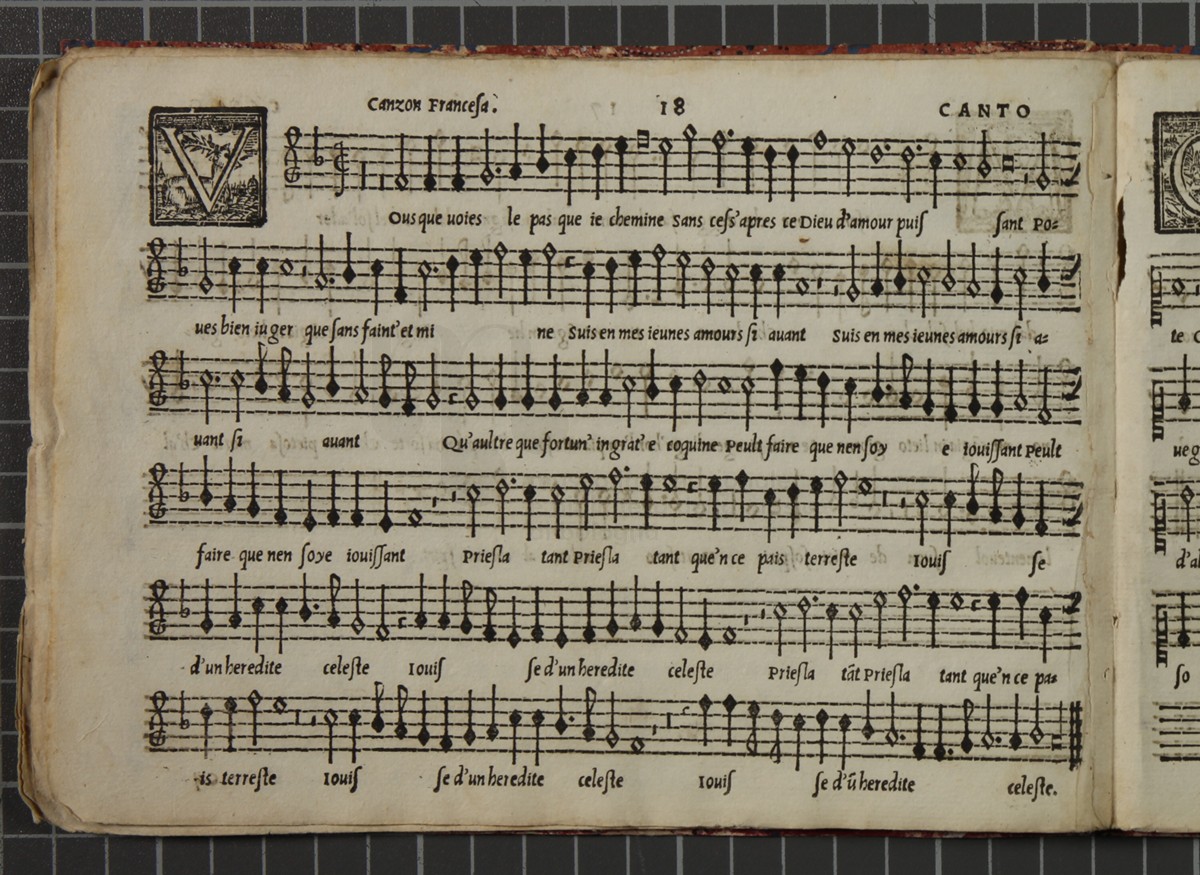 Canzon Franceſa. 18 CANTO
VOus que uoies le pas que ie chemine Sans ceſſ'apres ce Dieu d'amour puiſ ſant Po=
ues bien iuger que ſans faint'et mi ne Suis en mes ieunes amours ſi auant Suis en mes ieunes amours ſi a=
uant ſi auant Qu'aultre que fortun' ingrat' e coquine Peult faire que nen ſoy e iouiſſant Peult
faire que nen ſoye iouiſſant Prieſla tant Prieſla tant que'n ce pais terreſte Iouiſ ſe
d'un heredite celeſte Iouiſ ſe d'un heredite celeſte Prieſla tãt Prieſla tant que'n ce pa=
is terreſte Iouiſ ſe d'un heredite celeſte Iouiſ ſe d'ũ heredite celeſte.
te
ueg
d'al
ſo